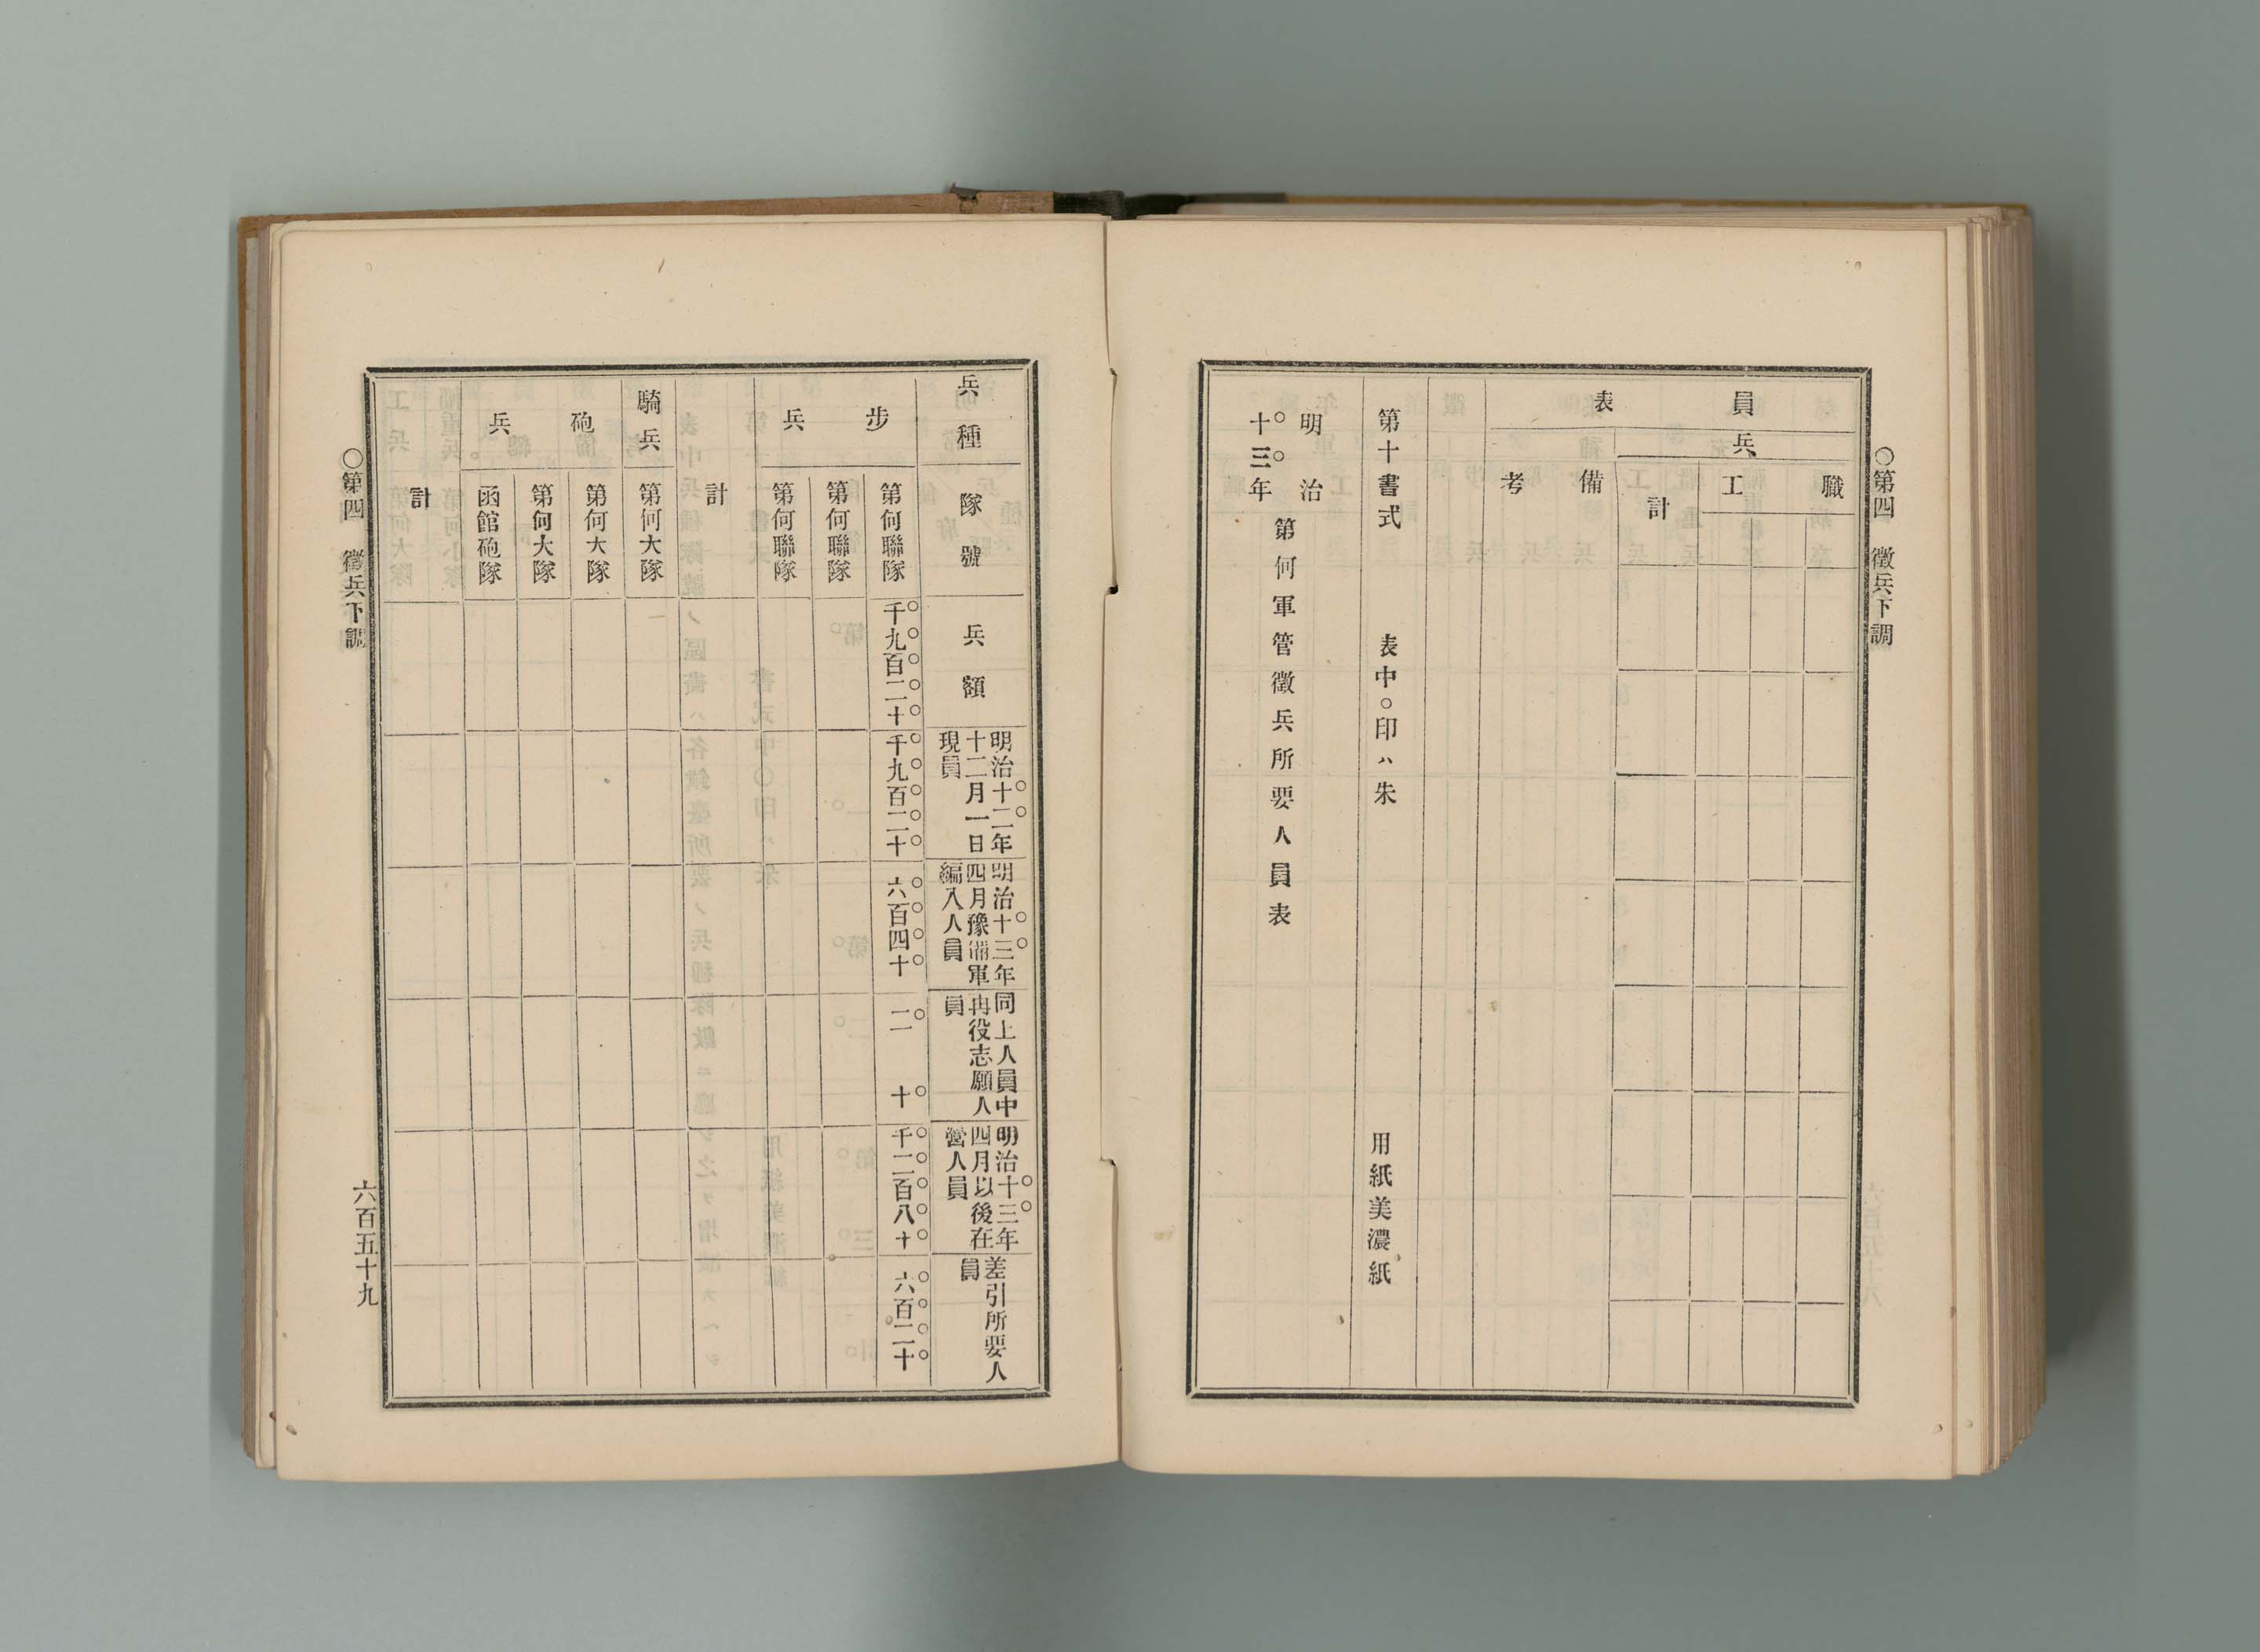 ○第四 徵兵下調
員表
兵
職工
計
備考
第十書式 表中○印ハ朱 用紙美濃紙
明治
十三年
第何軍管徵兵所要人員表
兵種
隊號
兵額
明治十二年
十二月一日
現員
明治十三年
四月豫備軍
編入人員
同上人員中
再役志願人
員
明治十三年
四月以後在
營人員
差引所要人
員
步兵
第何聯隊
千九百二十
千九百二十
六百四十
二十
千二百八十
六百二十
第何聯隊
第何聯隊
計
騎兵
第何大隊
砲兵
第何大隊
第何大隊
函館砲隊
計
○第四 徵兵下調
六百五十九